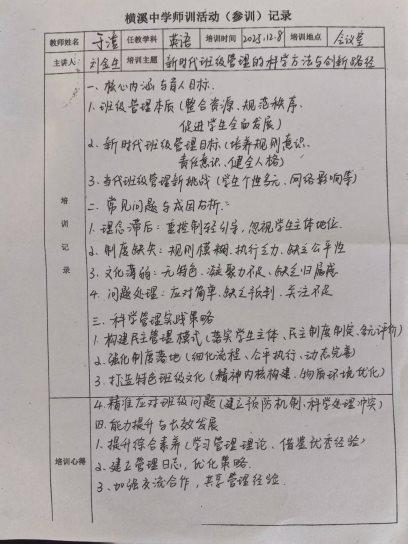 横溪中学师训活动（参训）记录
教师姓名 于洁 任教学科 英语 培训时间 2025.12.8 培训地点 会议室
主讲人 刘金华 培训主题 新时代班级管理的科学方法与创新路径
培训记录
一、核心内涵与育人目标.
1. 班级管理本质（整合资源、规范秩序、
促进学生全面发展）
2. 新时代班级管理目标（培养规则意识、
责任意识、健全人格）
3. 当代班级管理新挑战（学生个性多元、网络影响等）
二. 常见问题与成因分析：
1. 理念滞后：重控制轻引导，忽视学生主体地位.
2. 制度缺失：规则模糊、执行乏力、缺乏公平性
3. 文化薄弱：无特色、凝聚力不足、缺乏归属感
4. 问题处理：应对简单、缺乏预判、关注不足
三. 科学管理实践策略
1. 构建民主管理模式（落实学生主体、民主制度制定、多元评价）
2. 强化制度落地（细化流程、公平执行、动态完善）
3. 打造特色班级文化（精神内核构建、物质环境优化）
4. 精准应对班级问题（建立预防机制、科学处理冲突）
培训心得
四. 能力提升与长效发展
1. 提升综合素养（学习管理理论、借鉴优秀经验）
2. 建立管理日志，优化策略.
3. 加强交流合作，共享管理经验.